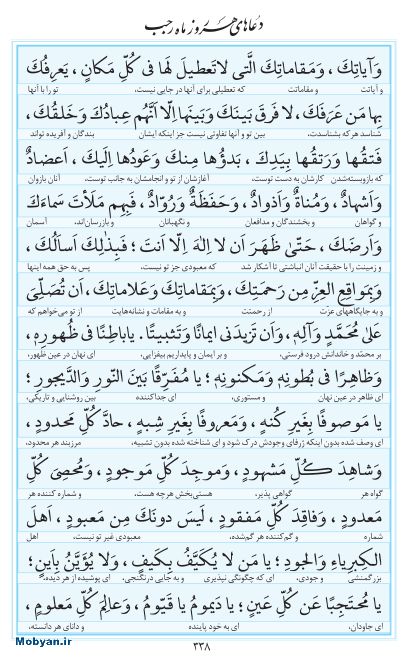 دعاهای هر روز ماه رجب
وَآیاتِكَ ، وَمَقاماتِكَ الَّتی لاتَعطیلَ لَها فی كُلِّ مَكانٍ ، یَعرِفُكَ
و آیاتت و مقاماتت که تعطیلی برای آنها در جایی نیست، تو را با آنها
بِها مَن عَرَفَكَ، لا فَرقَ بَینَكَ وَبَینَها اِلّا اَنَّهُم عِبادُكَ وَخَلقُكَ ،
شناسد هر که بشناسدت، بین تو و آنها تفاوتی نیست جز اینکه ایشان بندگان و آفریده تواند
فَتقُها وَرَتقُها بِیَدِكَ ، بَدؤُها مِنكَ وَعَودُها اِلَیكَ ، اَعضادٌ
که بازوبسته‌شدن کارشان به دست توست، آغازشان از تو و انجامشان به جانب توست، آنان بازوان
وَاَشهادٌ ، وَمُناةٌ وَاَذوادٌ ، وَحَفَظَةٌ وَرُوّادٌ ، فَبِهِم مَلَأتَ سَماءَكَ
و گواهان و بخشندگان و مدافعان و نگهبانان و بازرسان‌اند، آسمان
وَاَرضَكَ ، حَتّیٰ ظَهَرَ اَن لا اِلٰهَ اِلّا اَنتَ ؛ فَبِذلِكَ اَسأَلُكَ ،
و زمینت را با حقیقت آنان انباشتی تا آشکار شد که معبودی جز تو نیست، پس به حق همه اینها
وَبِمَواقِعِ العِزِّ مِن رَحمَتِكَ ، وَبِمَقاماتِكَ وَعَلاماتِكَ ، اَن تُصَلِّیَ
و به جایگاههای عزت از رحمتت و به مقامات و نشانه‌هایت از تو می‌خواهم که
عَلیٰ مُحَمَّدٍ وَآلِهِ ، وَاَن تَزیدَنی ایمانًا وَتَثبیتًا . یاباطِنًا فی ظُهورِهِ ،
بر محمّد و خاندانش درود فرستی، و بر ایمان و پایداریم بیفزایی، ای نهان در عین ظهور،
وَظاهِرًا فی بُطونِهِ وَمَكنونِهِ ؛ یا مُفَرِّقًا بَینَ النّورِ وَالدَّیجورِ ؛
ای ظاهر در عین نهان و مستوری، ای جداکننده بین روشنایی و تاریکی،
یا مَوصوفًا بِغَیرِ كُنهٍ ، وَمَعروفًا بِغَیرِ شِبهٍ ، حادَّ كُلِّ مَحدودٍ ،
ای وصف شده بدون اینکه ژرفای وجودش درک شود و ای شناخته شده بدون تشبیه، مرزبند هر محدود،
وَشاهِدَ كُلِّ مَشهودٍ ، وَموجِدَ كُلِّ مَوجودٍ ، وَمُحصِیَ كُلِّ
گواه هر گواهی پذیر، هستی‌بخش هرچه هست، و شماره کننده هر
مَعدودٍ ، وَفاقِدَ كُلِّ مَفقودٍ ، لَیسَ دونَكَ مِن مَعبودٍ ، اَهلَ
شماره و گم‌کننده هر گم‌شده، معبودی غیر تو نیست، اهل
الكِبرِیاءِ وَالجودِ ؛ یا مَن لا یُكَیَّفُ بِكَیفٍ ، وَلا یُؤَیَّنُ بِاَینٍ ؛
بزرگمنشی و جودی، ای که چگونگی نپذیری و به جایی درنگنجی، ای پوشیده از هر دیده،
یا مُحتَجِبًا عَن كُلِّ عَینٍ ؛ یا دَیمومُ یا قَیّومُ ، وَعالِمَ كُلِّ مَعلومٍ ،
ای جاودان، ای به خود پاینده و دانای هر دانسته،
Mobyan.ir
۳۳۸